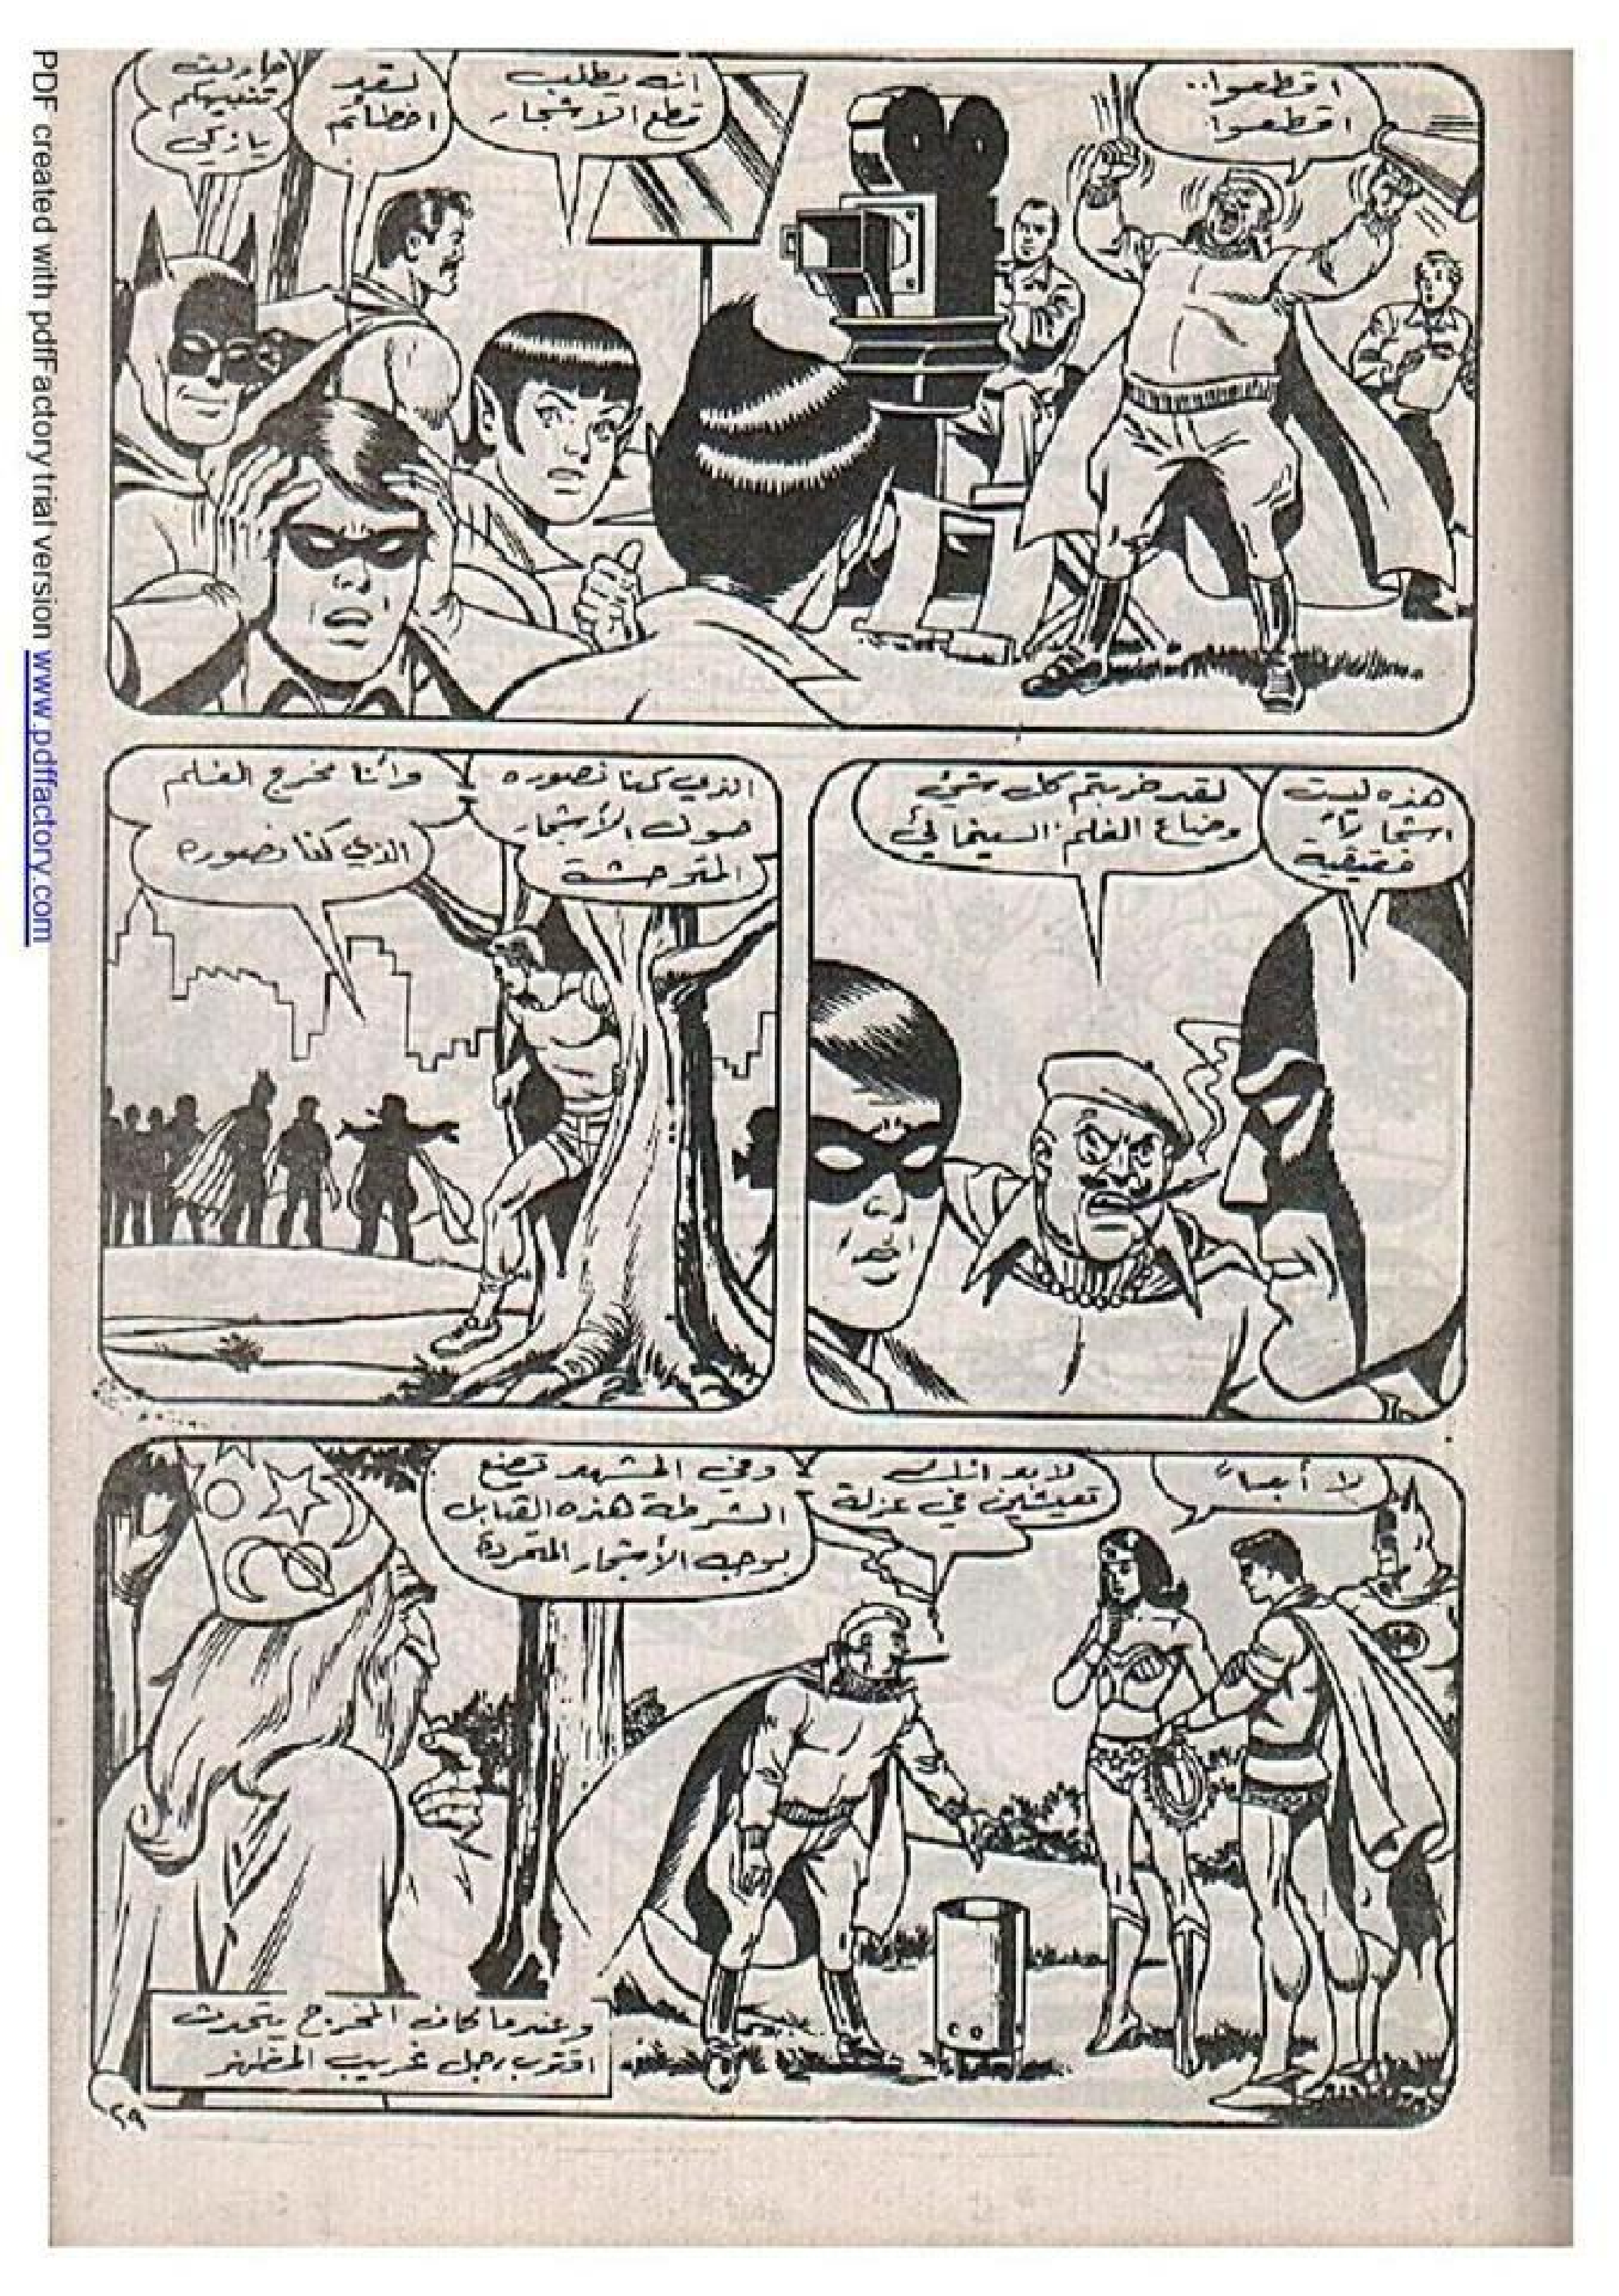 اقطعوا..
اقطعوا.
انه يطلب
قطع الاشجار
لقد
اخطأتم
حاولت
تنبيهكم
يازكي
هذه ليست
حقيقية
لقد خربتم كل شيئ
وضاع الفلم السينمائي
الذي كنا نصوره
حول الأشجار
المتوحشة
وأنا مخرج الفلم
الذي كنا نصوره
لا أبداً
لابد انك
تعيشين في عزلة
وفي المشهد تضع
الشرطة هذه القنابل
بوجه الأشجار المتمردة
وعندما كان المخرج يتحدث
اقترب رجل غريب المظهر
٢٩
PDF created with pdfFactory trial version www.pdffactory.com